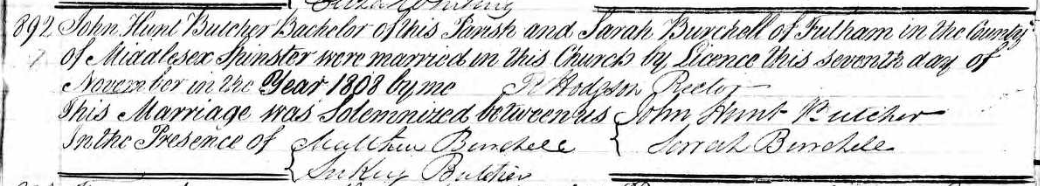 892 John Hunt Butcher Bachelor of this Parish and Sarah Burchell of Fulham in the County
of Middlesex Spinster were married in this Church by Licence this seventh day of
November in the Year 1808 by me R Hodgson Rector
This Marriage was Solemnized between us { John Hunt Butcher
In the Presence of { Matthew Burchell { Sarah Burchell
Sukey Butcher